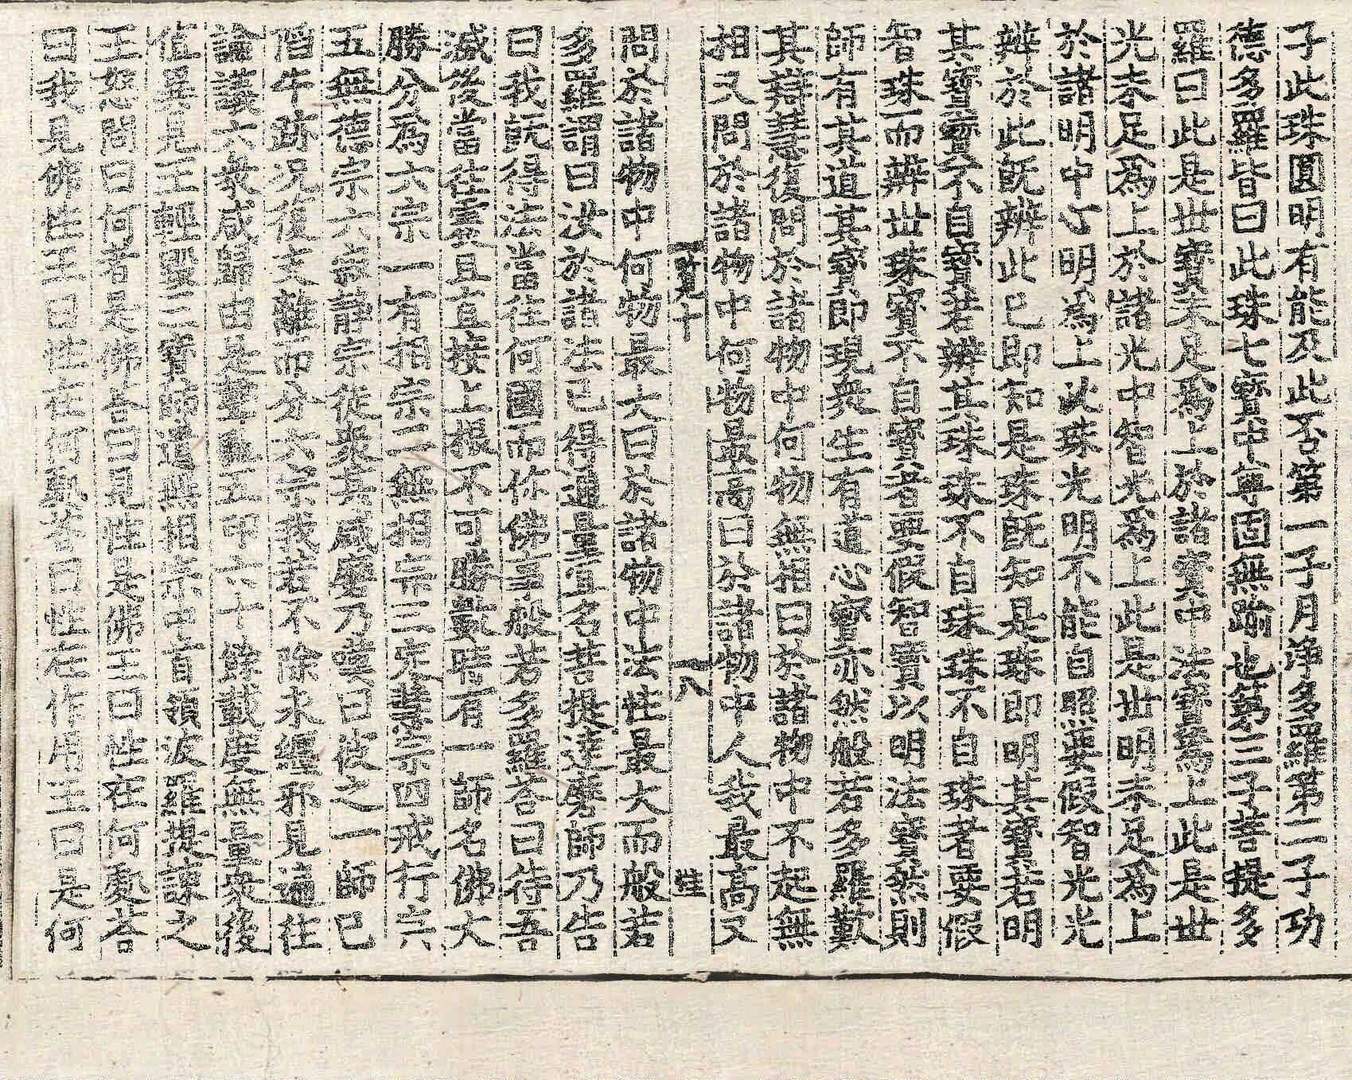 子此珠圓明有能及此否第一子月淨多羅第二子功
德多羅皆曰此珠七寶中尊固無踰也第三子菩提多
羅曰此是世寶未足為上於諸寶中法寶為上此是世
光未足為上於諸光中智光為上此是世明未足為上
於諸明中心明為上此珠光明不能自照要假智光光
辨於此既辨此已即知是珠既知是珠即明其寶若明
其寶寶不自寶若辨其珠珠不自珠珠不自珠者要假
智珠而辨世珠寶不自寶者要假智寶以明法寶然則
師有其道其寶即現衆生有道心寶亦然般若多羅歎
其辯慧復問於諸物中何物無相曰於諸物中不起無
相又問於諸物中何物最高曰於諸物中人我最高又
八
問於諸物中何物最大曰於諸物中法性最大而般若
多羅謂曰汝於諸法已得通量宜名菩提達磨師乃告
曰我既得法當往何國而作佛事般若多羅荅曰待吾
滅後當往震旦直接上根不可勝數時有一師名佛大
勝分為六宗一有相宗二無相宗三定慧宗四戒行宗
五無德宗六寂静宗徒衆甚盛磨乃嘆曰彼之一師已
陷牛跡况復支離而分六宗我若不除永纏邪見遍往
論議六衆咸歸由是聲馳五印六十餘載度無量衆後
值異見王輕毀三寶師遣無相宗中首領波羅提諫之
王怒問曰何者是佛荅曰見性是佛王曰性在何處荅
曰我見佛性王曰性在何處荅曰性在作用王曰是何